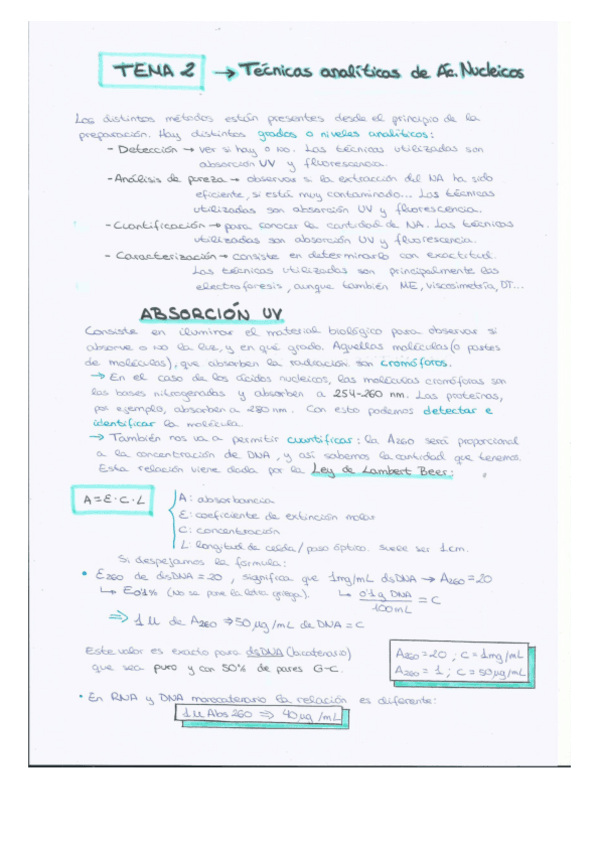 TEMA 2 → Técnicas analíticas de Ac. Nucleicos
Los distintos métodos están presentes desde el principio de la
preparación. Hay distintos grados o niveles analíticos:
- Detección → ver si hay o no. Las técnicas utilizadas son
absorción UV y fluorescencia.
- Análisis de pureza → observar si la extracción del NA ha sido
eficiente, si está muy contaminado... Las técnicas
utilizadas son absorción UV y fluorescencia.
- Cuantificación → para conocer la cantidad de NA. Las técnicas
utilizadas son absorción UV y fluorescencia.
- Caracterización → consiste en determinarlo con exactitud.
Las técnicas utilizadas son principalmente las
electroforesis, aunque también ME, viscosimetría, DT...
ABSORCIÓN UV
Consiste en iluminar el material biológico para observar si
absorve o no la luz, y en qué grado. Aquellas moléculas (o partes
de moléculas), que absorben la radiación son cromóforos.
→ En el caso de los ácidos nucleicos, las moléculas cromóforas son
las bases nitrogenadas y absorben a 254-260 nm. Las proteínas,
por ejemplo, absorben a 280 nm. Con esto podemos detectar e
identificar la molécula.
→ También nos va a permitir cuantificar: la A260 será proporcional
a la concentración de DNA, y así sabemos la cantidad que tenemos.
Esta relación viene dada por la Ley de Lambert Beer:
A = Ɛ · C · L
A: absorbancia
Ɛ: coeficiente de extinción molar
C: concentración
L: longitud de celda / paso óptico. suele ser 1cm.
Si despejamos la fórmula:
• Ɛ260 de dsDNA = 20, significa que 1mg/mL dsDNA → A260 = 20
↳ E0'1% (No se pone la letra griega). ↳ 0'1g DNA / 100mL = C
⇒ 1 U de A260 ⇒ 50 µg/mL de DNA = C
Este valor es exacto para dsDNA (bicatenario)
que sea puro y con 50% de pares G-C.
A260 = 20 ; C = 1mg/mL
A260 = 1 ; C = 50µg/mL
• En RNA y DNA monocatenario la relación es diferente:
1 U Abs 260 ⇒ 40 µg/mL